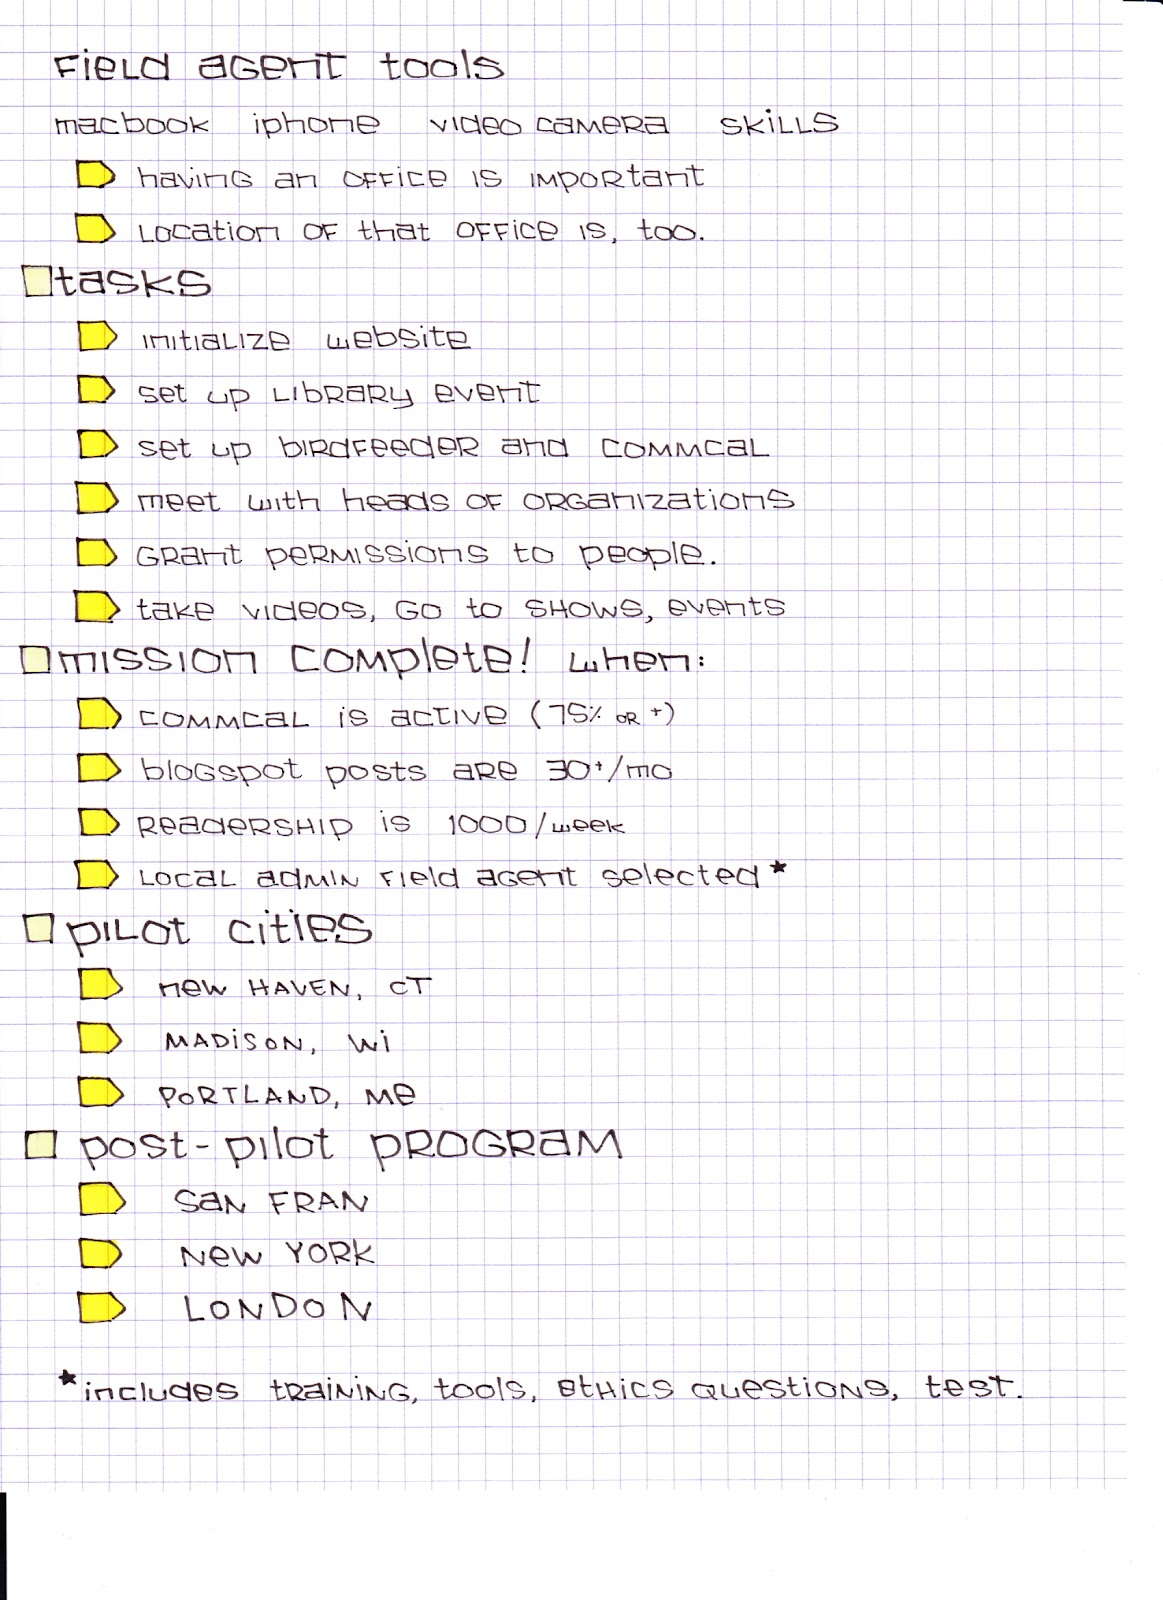 Field agent tools
macbook iphone video camera skills
having an office is important
location of that office is, too.
tasks
initialize website
set up library event
set up birdfeeder and commcal
meet with heads of organizations
grant permissions to people.
take videos, go to shows, events
mission complete! when:
commcal is active (75% or +)
blogspot posts are 30+/mo
readership is 1000/week
local admin field agent selected*
pilot cities
new HAVEN, CT
MADiSON, Wi
PORTLAND, Me
post-pilot program
San FRAN
New YORK
LONDON
*includes training, tools, ethics questions, test.